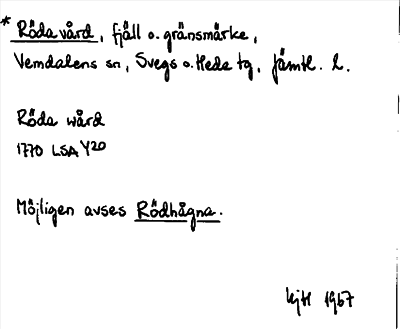 * Röda vård, fjäll o. gränsmärke,
Vemdalens sn, Svegs o. Hede tg, Jämtl. l.
Röda wård
1770 LSA Y20
Möjligen avses Rödhågna.
1967